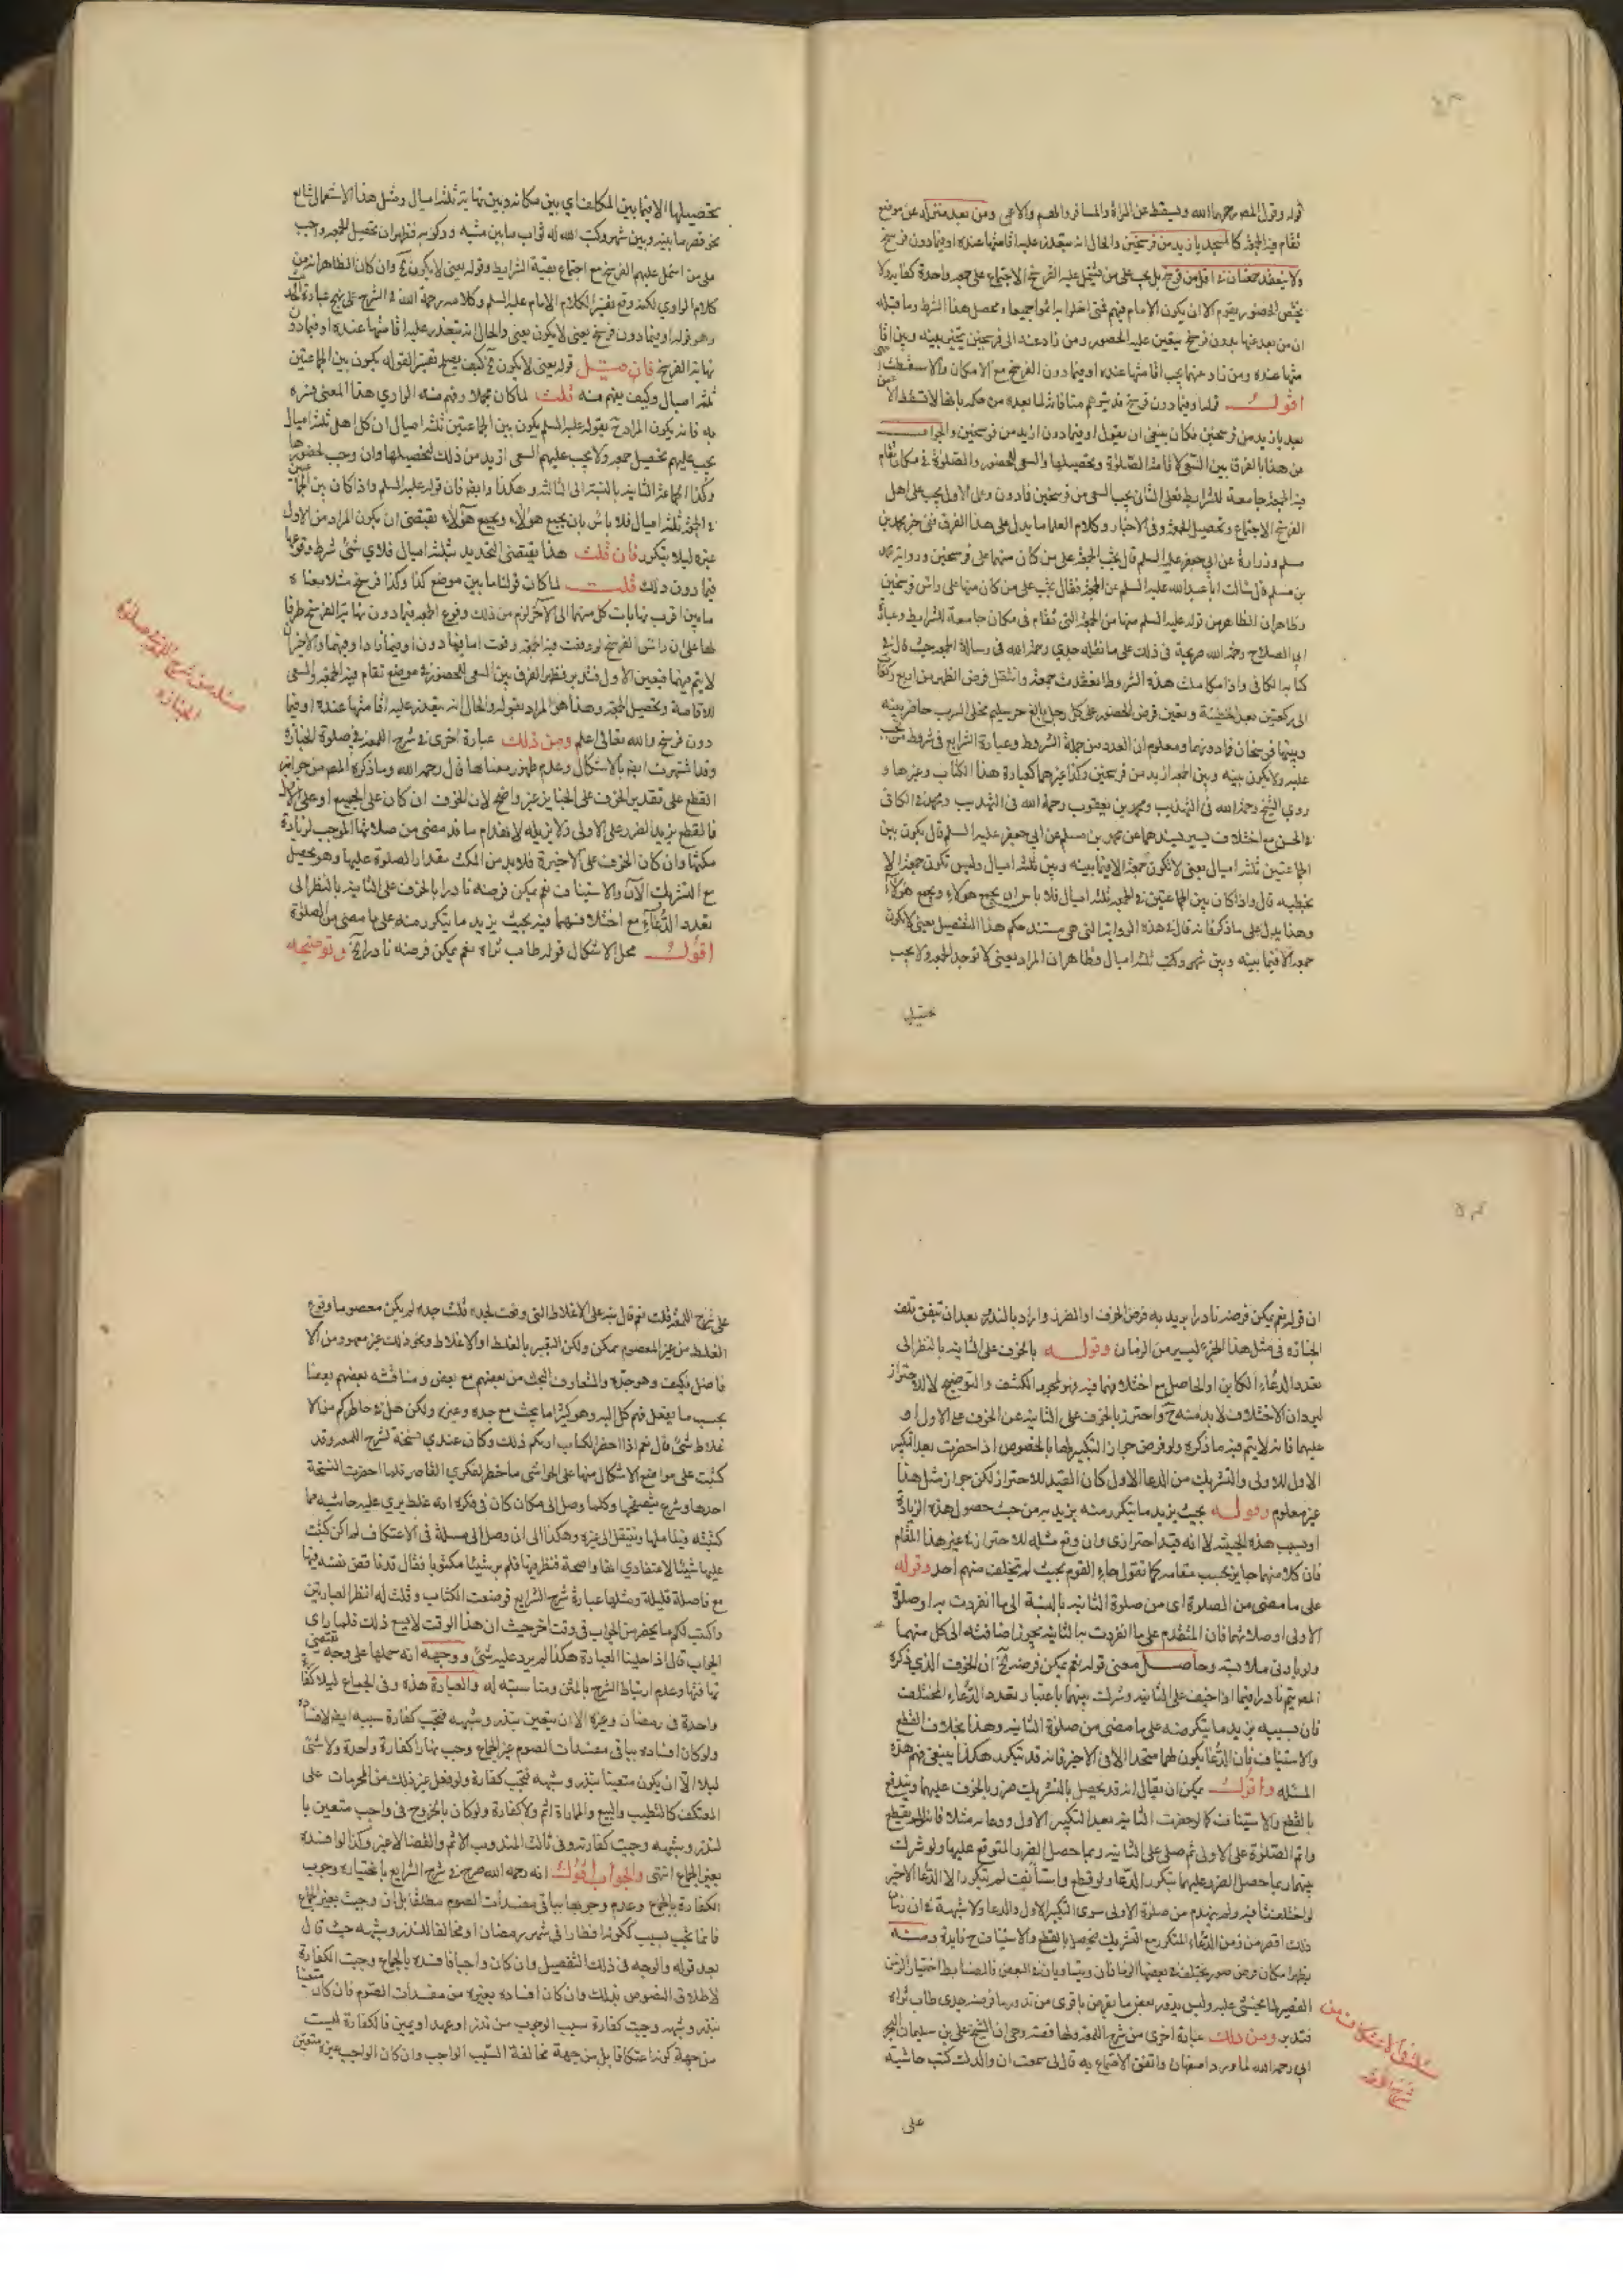 قوله وقول المصه رحمهما الله ويسقط عن المرأة والمسافر والهم والاعمى ومن بعد منزله عن موضع
تقام فيه الجمعة كالمسجد بازيد من فرسخين والحال انه يتعذر عليه اقامتها عنده او فيما دون فرسخ
ولا ينعقد جمعتان في اقل من فرسخ بل يجب على من يشتمل عليه الفرسخ الاجتماع على جمعة واحدة كفاية ولا
يختص الحضور بقوم الا ان يكون الامام فيهم فمتى اخلوا به اثموا جميعا ومحصل هذا الشرط وما قبله
ان من بعد عنها بدون فرسخ يتعين عليه الحضور ومن زاد عنه الى فرسخين يتخير بينه وبين اقا
متها عنده ومن زاد عنهما يجب اقامتها عنده او فيما دون الفرسخ مع الامكان والا سقطت
اقول قوله او فيما دون فرسخ قد يتوهم منافاته لما بعده من حكمه بانها لا تسقط الا عمن
بعد بازيد من فرسخين فكان ينبغي ان يقول او فيما دون ازيد من فرسخين والجواب
عن هذا بالفرق بين السعي لاقامة الصلوة وتحصيلها والسعي للحضور والصلوة في مكان تقام
فيه الجمعة جامعة للشرايط فعلى الثاني يجب السعي من فرسخين فما دون وعلى الاول يجب على اهل
الفرسخ الاجتماع وتحصيل الجمعة وفي الاخبار وكلام العلما ما يدل على هذا الفرق ففي خبر محمد بن
مسلم وزرارة عن ابي جعفر عليه السلم قال تجب الجمعة على من كان منها على فرسخين ورواية محمد
بن مسلم قال سالت ابا عبد الله عليه السلم عن الجمعة فقال تجب على من كان منها على راس فرسخين
وظاهر ان الظاهر من قوله عليه السلم منها من الجمعة التي تقام في مكان جامعة للشرايط وعبارة
ابي الصلاح رحمه الله صريحة في ذلك على ما نقله جدي رحمه الله في رسالة الجمعة حيث قال في
كتابه الكافي واذا تكاملت هذه الشروط انعقدت جمعة وانتقل فرض الظهر من اربع ركعات
الى ركعتين بعد الخطبة وتعين فرض الحضور على كل رجل بالغ حر سليم مخلى السرب حاضر بينه
وبينها فرسخان فما دونهما ومعلوم ان العدد من جملة الشروط وعبارة الشرايع في شروط من تجب
عليه ولا يكون بينه وبين الجمعة ازيد من فرسخين وكذا غيرهما كعبارة هذا الكتاب وغيرها و
روى الشيخ رحمه الله في التهذيب ومحمد بن يعقوب رحمه الله في التهذيب ومحمد في الكافي
في الحسن مع اختلاف يسير بسندهما عن محمد بن مسلم عن ابي جعفر عليه السلم قال يكون بين
الجماعتين ثلثة اميال يعني لا تكون جمعة الا فيما بينه وبين ثلثة اميال وليس تكون جمعة الا
بخطبة قال واذا كان بين الجماعتين في الجمعة ثلثة اميال فلا باس ان يجمع هؤلاء ويجمع هؤلاء
وهذا يدل على ما ذكرنا فانه قال في هذه الرواية التي هي مستند حكم هذا التفصيل يعني لا تكون
جمعة الا فيما بينه وبين ثلثة اميال وظاهر ان المراد يعني لا توجد الجمعة ولا يجب
تحصيلها الا فيما بين المكلف اي بين مكانه وبين نهاية ثلثة اميال ومثل هذا الاستعمال شايع
على من اشتمل عليهم الفرسخ مع اجتماع بقية الشرايط وقوله يعني لا يكون الخ وان كان الظاهر انه من
كلام الراوي لكنه وقع تفسير الكلام الامام عليه السلم وكلامه رحمة الله في الشرح على نهج عبارة الحد
وهو قوله او فيما دون فرسخ يعني لا يكون يعني والحال انه يتعذر عليه اقامتها عنده او فيما دون
نهاية الفرسخ فان قيل قوله يعني لا يكون الخ كيف يصلح تفسير القوله يكون بين الجماعتين
ثلثة اميال وكيف يفهم منه قلت لما كان مجملا وفهم منه الراوي هذا المعنى فسره
به فانه يكون المراد ح بقوله عليه السلم يكون بين الجماعتين ثلثة اميال ان كل اهل ثلثة اميال
يجب عليهم تحصيل جمعة ولا يجب عليهم السعي ازيد من ذلك لتحصيلها وان وجب لحضورها
وكذا الجماعة الثانية بالنسبة الى الثالثة وهكذا وايضا فان قوله عليه السلم واذا كان بين الجماعتين
في الجمعة ثلثة اميال فلا باس بان يجمع هؤلاء ويجمع هؤلاء يقتضي ان يكون المراد من الاول
غيره ليلا يتكرر فان قلت هذا يقتضي التحديد بثلثة اميال فلاي شئ شرط وقوعها
فيما دون ذلك قلت لما كان قولنا ما بين موضع كذا وكذا فرسخ مثلا معناه
ما بين اقرب نهايات كل منهما الى الآخر لزم من ذلك وقوع الجمعة فيما دون نهاية الفرسخ ظرفا
لها على ان راس الفرسخ لو وقفت فيه الجمعة وقعت اما فيما دون او فيما زاد او فيهما والاخيران
لا يتم فيهما فتعين الاول فتدبر فظهر الفرق بين السعي للحضور في موضع تقام فيه الجمعة والسعي
للاقامة وتحصيل الجمعة وهذا هو المراد بقوله والحال انه يتعذر عليه اقامتها عنده او فيما
دون فرسخ والله تعالى اعلم ومن ذلك عبارة اخرى في شرح اللمعة في صلوة الجنازة
وقد اشتهرت ايضا بالاشكال وعدم ظهور معناها قال رحمه الله وما ذكره المصه من جواز
القطع على تقدير الخوف على الجنازة غير واضح لان الخوف ان كان على الجميع او على الاولى
فالقطع يزيد الضرر على الاولى ولا يزيله لانهدام ما قد مضى من صلاتها الموجب لزيادة
مكثها وان كان الخوف على الاخيرة فلا بد من المكث مقدار الصلوة عليها وهو يحصل
مع التشريك الآن والاستيناف نعم يمكن فرضه نادرا بالخوف على الثانية بالنظر الى
تعدد الدعاء مع اختلافهما فيه بحيث يزيد ما يتكرر منه على ما مضى من الصلوة
اقول محل الاشكال قوله طاب ثراه نعم يمكن فرضه نادرا الخ وتوضيحه
مسئلة من شرح اللمعة في صلوة
الجنازة
ان قوله نعم يمكن فرضه نادرا يريد به فرض الخوف او الضرر واراد بالندرة بعد ان تتفق تلف
الجنازة في مثل هذا الجزء اليسير من الزمان وقوله بالخوف على الثانية بالنظر الى
تعدد الدعاء الكاين او الحاصل مع اختلافهما فيه فهو لمجرد الكشف والتوضيح لا للاحتراز
ليرد ان الاختلاف لا بد منه ح واحترز بالخوف على الثانية عن الخوف على الاولى او
عليهما فانه لا يتم فيه ما ذكره ولو فرض جواز التكبير لها بالخصوص اذا حضرت بعد تكبير
الاول للاولى والتشريك من الدعا الاول كان القيد للاحتراز لكن جواز مثل هذا
غير معلوم وقوله بحيث يزيد ما يتكرر منه يزيد به من حيث حصول هذه الزيادة
او بسبب هذه الحيثية لا انه قيد احترازي وان وقع مثله للاحتراز في غير هذا المقام
فان كلا منهما جايز بحسب مقامه كما تقول جاء القوم بحيث لم يتخلف منهم احد وقوله
على ما مضى من الصلوة اي من صلوة الثانية بالنسبة الى ما انفردت به او صلوة
الاولى او صلاتهما فان المتقدم على ما انفردت به الثانية يجوز اضافته الى كل منهما
ولو بادنى ملابسة وحاصل معنى قوله نعم يمكن فرضه الخ ان الخوف الذي ذكره
المصه يتم نادرا فيما اذا خيف على الثانية وشرك بينهما باعتبار تعدد الدعاء المختلف
فان بسببه يزيد ما يتكرر منه على ما مضى من صلوة الثانية وهذا بخلاف القطع
والاستيناف فان الدعا يكون لهما متحدا الا في الاخير فانه قد يتكرر هكذا ينبغي فهم هذه
المسئلة واقول يمكن ان يقال انه قد يحصل بالتشريك ضرر بالخوف عليهما ويندفع
بالقطع والاستيناف كما لو حضرت الثانية بعد التكبير الاول ودعائه مثلا فانه لو لم يقطع
واتم الصلوة على الاولى ثم صلى على الثانية ربما حصل الضرر المتوقع عليها ولو شرك
بينهما ربما حصل الضرر عليهما بتكرر الدعا ولو قطع واستانف لم يتكرر الا الدعا الاخير
لو اختلفتا فيه ولم ينهدم من صلوة الاولى سوى التكبير الاول والدعا ولا شبهة في ان زمان
ذلك اقصر من زمن الدعاء المتكرر مع التشريك فيحصل بالقطع والاستيناف ح فايدة ومنه
فتدبر ومن ذلك عبارة اخرى من شرح اللمعة ولها قصة وهي ان الشيخ علي بن سليمان البحر
اني رحمه الله لما ورد اصفهان واتفق الاجتماع به قال لي سمعت ان والدك كتب حاشية
على
مسئلة في الاعتكاف من
شرح اللمعة
على شرح اللمعة قلت نعم قال نبه على الاغلاط التي وقعت لجده قلت جده لم يكن معصوما ووقوع
الغلط من غير المعصوم ممكن ولكن التعبير بالغلط او الاغلاط ونحو ذلك غير معهود من الا
فاضل فكيف وهو جده والمتعارف البحث من بعضهم مع بعض ومناقشة بعضهم بعضا
بحسب ما يصل فهم كل اليه وهو كثيرا ما يبحث مع جده وغيره ولكن هل في خاطركم من الا
غلاط شئ قال نعم اذا احضر الكتاب اريكم ذلك وكان عندي نسخة لشرح اللمعة وقد
كتبت على مواضع الاشكال منها على الحواشي ما خطر لفكري القاصر فلما احضرت النسخة
اخذها وشرع يتصفحها وكلما وصل الى مكان كان في فكره انه غلط يرى عليه حاشية مما
كتبته فيتاملها وينتقل الى غيره وهكذا الى ان وصل الى مسئلة في الاعتكاف لم اكن كتبت
عليها شيئا لاعتقادي انها واضحة فنظر فيها فلم ير شيئا مكتوبا فقال قد ناقض نفسه فيها
مع فاصلة قليلة ومثلها عبارة شرح الشرايع فوضعت الكتاب وقلت له انظر العبارتين
واكتب لكم ما يحضر من الجواب في وقت اخر حيث ان هذا الوقت لا يسع ذلك فلما راى
الجواب قال اذا حلينا العبارة هكذا لم يرد عليه شئ ووجهه انه حملها على وجه يقتضي
تهافتها وعدم ارتباط الشرح بالمتن ومناسبته له والعبارة هذه وفي الجماع ليلا كفا
رة واحدة في رمضان وغيره الا ان يتعين بنذر وشبهه فتجب كفارة بسببه ايضا لافساده
ولو كان افساده بباقي مفسدات الصوم غير الجماع وجب نهارا كفارة واحدة ولا شئ
ليلا الا ان يكون متعينا بنذر وشبهه فتجب كفارة ولو فعل غير ذلك من المحرمات على
المعتكف كالتطيب والبيع والمماراة اثم ولا كفارة ولو كان بالخروج في واجب متعين با
لنذر وشبهه وجبت كفارته وفي ثالث المندوب الاثم والقضا لا غير وكذا لو افسده
بغير الجماع انتهى والجواب اقول انه رحمه الله صرح في شرح الشرايع باختياره وجوب
الكفارة بالجماع وعدم وجوبها بباقي مفسدات الصوم مطلقا بل ان وجبت بغير الجماع
فانما تجب بسبب ككونه افطارا في شهر رمضان او مخالفا للنذر وشبهه حيث قال
بعد قوله والوجه في ذلك التفصيل وان كان واجبا فافسده بالجماع وجبت الكفارة
لاطلاق النصوص بذلك وان كان افساده بغيره من مفسدات الصوم فان كان متعينا
بنذر وشبهه وجبت كفارة سبب الوجوب من نذر او عهد او يمين فالكفارة ليست
من جهة كونه اعتكافا بل من جهة مخالفة السبب الواجب وان كان الواجب غير متعين